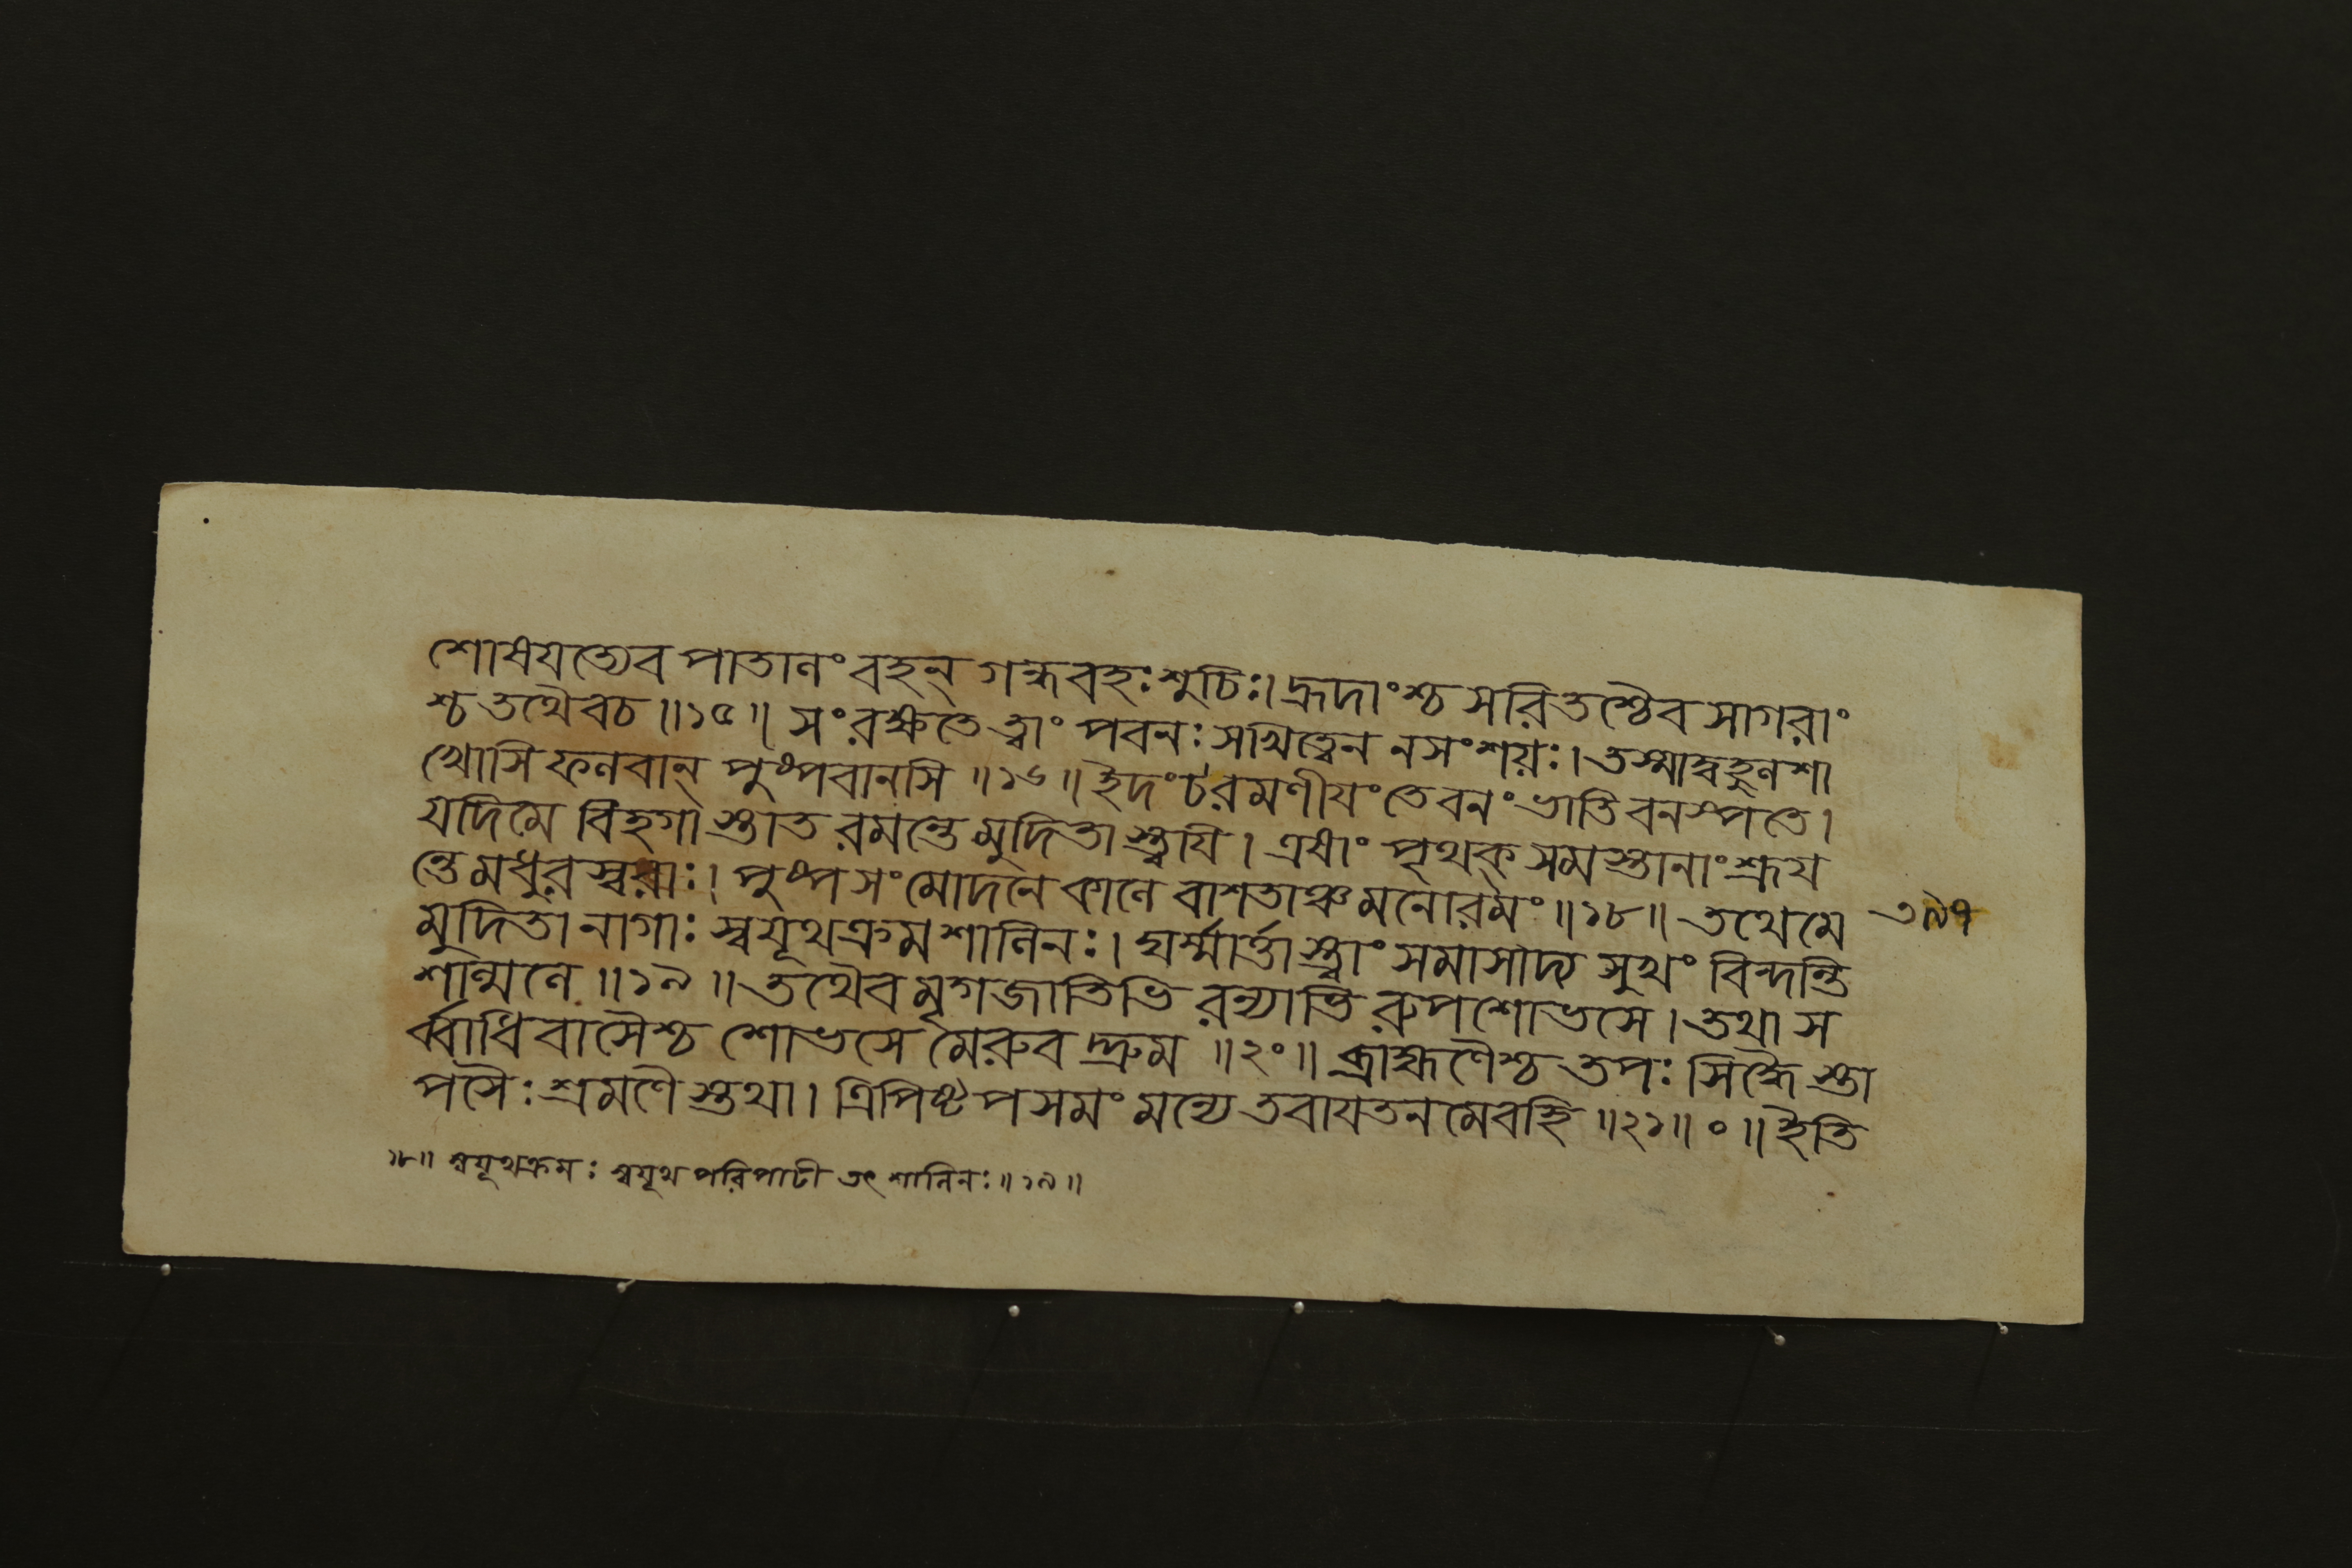 শোষয়ত্যেব পাতালং বহন্ গন্ধবহঃ শুচিঃ। হ্রদাংশ্চ সরিতশ্চৈব সাগরাং
শ্চ তথৈবচ॥১৫॥ সংরক্ষতে ত্বাং পবনঃ সখিত্বেন নসংশয়ঃ। তস্মাদ্বহুলশা
খোসি ফলবান্ পুষ্পবানসি॥১৬॥ ইদংচরমণীয়ংতেবনংভাতি বনস্পতে।
যদিমে বিহগাস্তাত রমন্তে মুদিতাস্ত্বয়ি। এষাং পৃথক্ সমস্তানাং শ্রূয
ন্তে মধুর স্বরাঃ। পুষ্পসংমোদনে কালে বাশতাঞ্চ মনোরমং॥১৮॥ তথেমে
মুদিতা নাগাঃ স্বযূথক্রমশালিনঃ। ঘর্ম্মার্ত্তাস্ত্বাং সমাসাদ্য সুখং বিন্দন্তি
শাল্মলে॥১৯॥ তথৈব মৃগজাতিভি রন্যাভি রুপশোভসে। তথা স
র্ব্বাধিবাসৈশ্চ শোভসে মেরুব দ্দ্রুম॥২০॥ ব্রাহ্মণৈশ্চ তপঃ সিদ্ধৈ স্তা
পসৈঃ শ্রমণৈ স্তথা। ত্রিপিষ্টপসমং মন্যে তবায়তনমেবহি॥২১॥০॥ ইতি
৩৯৭
১৮॥ স্বযূথক্রমঃ স্বযূথ পরিপাটী তৎ শালিনঃ॥১৯॥